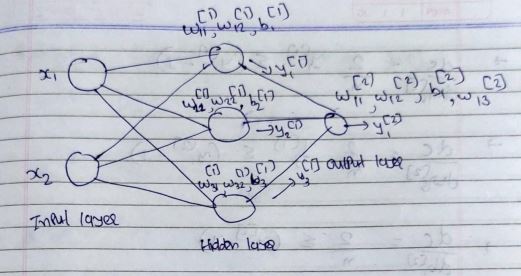 w₁₁^[1], w₁₂^[1], b₁^[1]
x₁
y₁^[1]
w₁₁^[2], w₁₂^[2], b₁^[2], w₁₃^[2]
w₂₂^[1], b₂^[1]
y₂^[1]
y₁^[2]
x₂
w₃₁^[1], w₃₂^[1], b₃^[1]
y₃^[1]
output layer
Input layer
Hidden layer